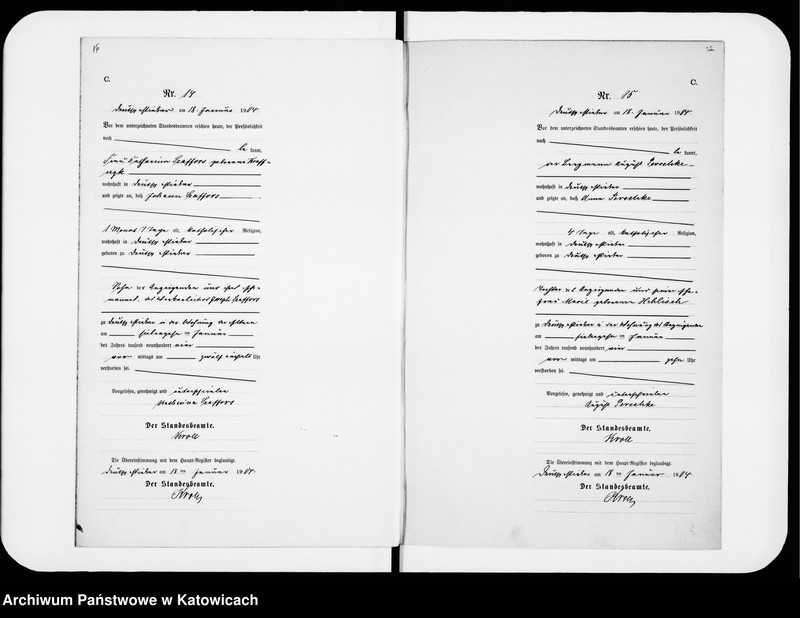 C.
Nr. 14
am 18. Januar 1904.
Vor dem unterzeichneten Standesbeamten erschien heute, der Persönlichkeit
nach
be kannt,
Frau Katharina geborene
wohnhaft in Deutsch
und zeigte an, daß Johann
1 Monat 7 Tage alt, katholischer Religion,
wohnhaft in Deutsch
geboren zu Deutsch
Sohn der Anzeigenden und
zu Deutsch in der Wohnung der Eltern
am siebzehn ten Januar
des Jahres tausend neunhundert vier
vor mittags um zwölf einhalb Uhr
verstorben sei.
Vorgelesen, genehmigt und unterschrieben
Der Standesbeamte.
Kroll
Die Übereinstimmung mit dem Haupt-Register beglaubigt.
am 18 ten Januar 1904.
Der Standesbeamte.
Kroll
C.
Nr. 15
am 18. Januar 1904.
Vor dem unterzeichneten Standesbeamten erschien heute, der Persönlichkeit
nach
be kannt,
der Bergmann August
wohnhaft in Deutsch
und zeigte an, daß Anna
4 Tage alt, katholischer Religion,
wohnhaft in Deutsch
geboren zu Deutsch
Tochter des Anzeigenden und seiner Ehe-
frau Marie geborene
zu Deutsch in der Wohnung des Anzeigenden
am siebzehn ten Januar
des Jahres tausend neunhundert vier
vor mittags um zehn Uhr
verstorben sei.
Vorgelesen, genehmigt und unterschrieben
August
Der Standesbeamte.
Kroll
Die Übereinstimmung mit dem Haupt-Register beglaubigt.
am 18 ten Januar 1904
Der Standesbeamte.
Kroll
Archiwum Państwowe w Katowicach